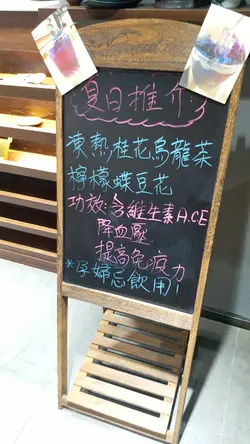 是日推介
東熱桂花烏龍茶
檸檬蝶豆花
功效:含維生素A.C.E
降血壓
提高免疫力
*孕婦忌飲用!